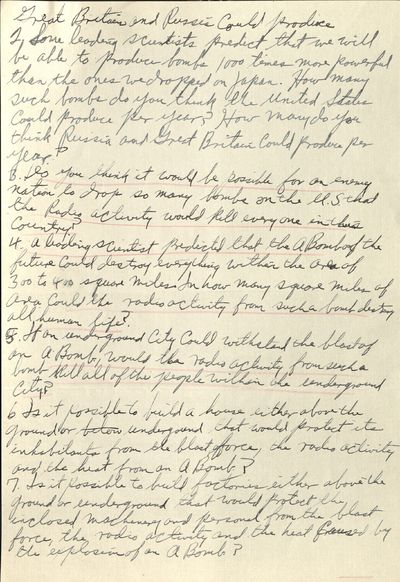 Great Britain and Russia Could produce
2, Some leading scientists predict that we will
be able to produce bombs 1000 times more powerful
than the ones we dropped on Japan. How many
such bombs do you think the United States
Could produce per year? How many do you
think Russia and Great Britain Could produce per
year?
3. Do you think it would be possible for an enemy
nation to drop so many bombs on the U.S that
the Radio activity would kill everyone in this
Country?
4. A leading scientist predicted that the A Bomb of the
future Could destroy everything within the area of
300 to 400 square miles. In how many square miles of
area Could the radio activity from such a bomb destroy
all human life?
5. If an underground City Could withstand the blast of
an A Bomb, would the radio activity from such a
bomb kill all of the people within the underground
City?
6 Is it possible to build a house either above the
ground or below undergound that would protect its
inhabitants from the blast force, the radio activity
and the heat from an A Bomb?
7. Is it possible to build factories either above the
ground or underground that would protect the
inclosed machinery and personal from the blast
force, the radio activity and the heat Caused by
the explosion of an A Bomb?